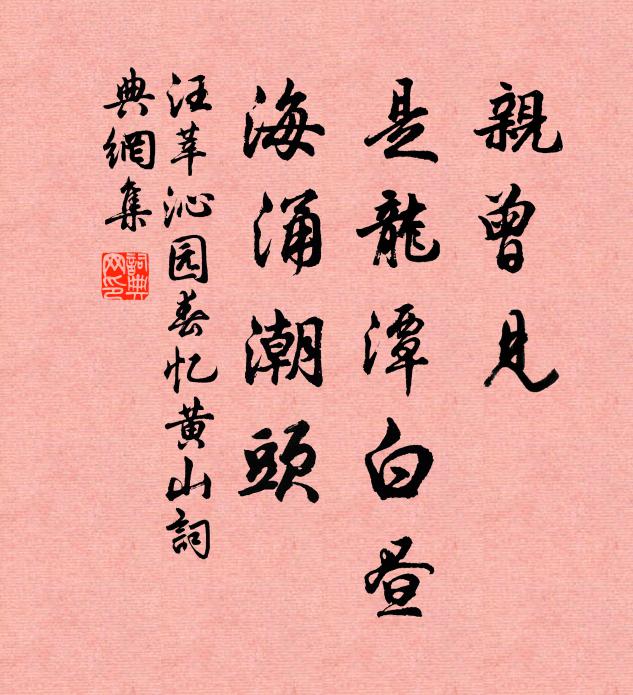 親曾見
是龍潭白晝
海涌潮頭
汪莘沁园春忆黄山詞
典網集
詞典網印